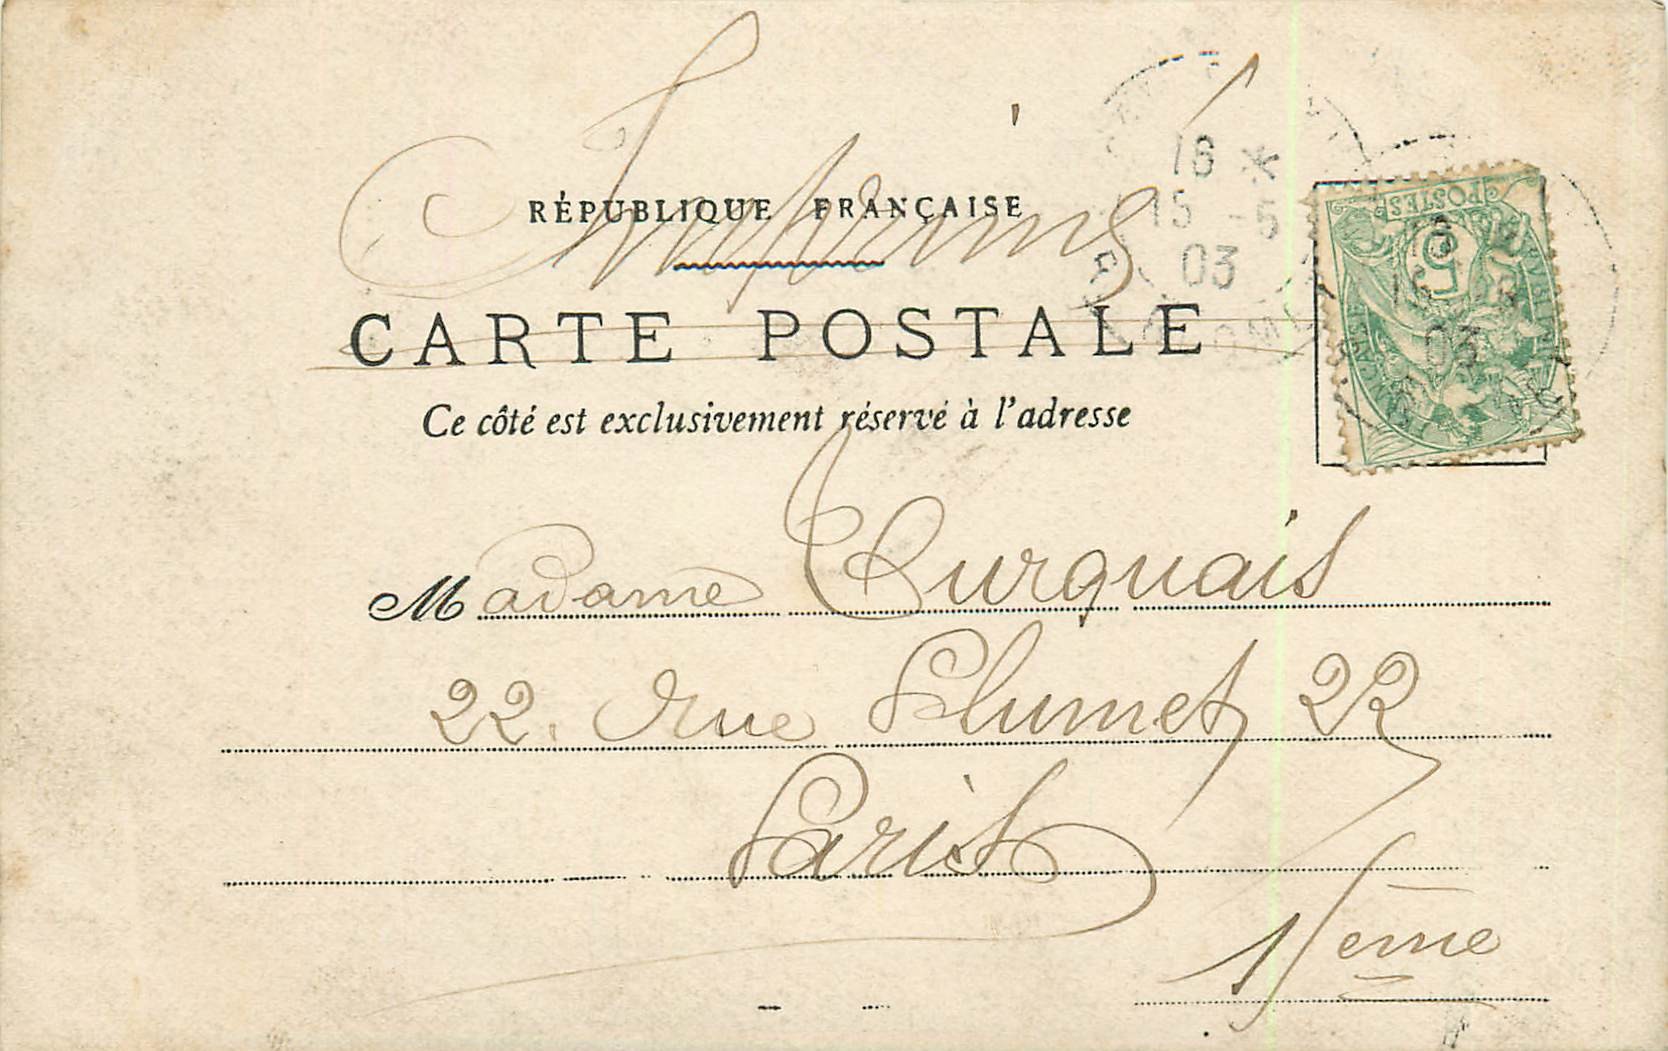 Imprimé
RÉPUBLIQUE FRANÇAISE
CARTE POSTALE
Ce côté est exclusivement réservé à l'adresse
16 *
15 -5
03
POSTES
5
16
16
03
Madame Turquais
22. rue Plumet 22
Paris
15eme